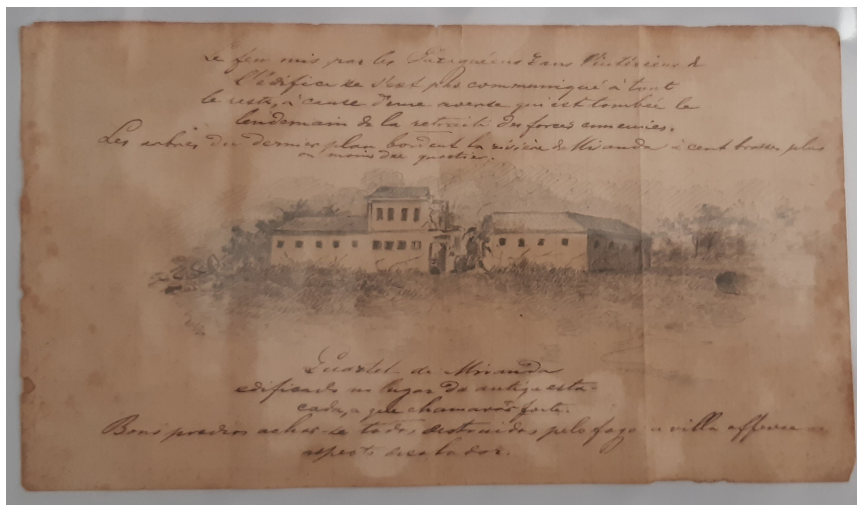 Le feu mis par les Paraguéens dans l'intérieur de
l'édifice ne s'est pas communiqué à tout
le reste, à cause d'une averse qui est tombée le
lendemain de la retraite des forces ennemies.
Les arbres du dernier plan bordent la rivière de Miranda à cent brasses plus
ou moins du quartier.
Quartel de Miranda
edificado no lugar da antiga esta-
cada, a que chamavão forte.
Bons predios achão-se todos destruidos pelo fogo a villa offerece
aspecto desolador.